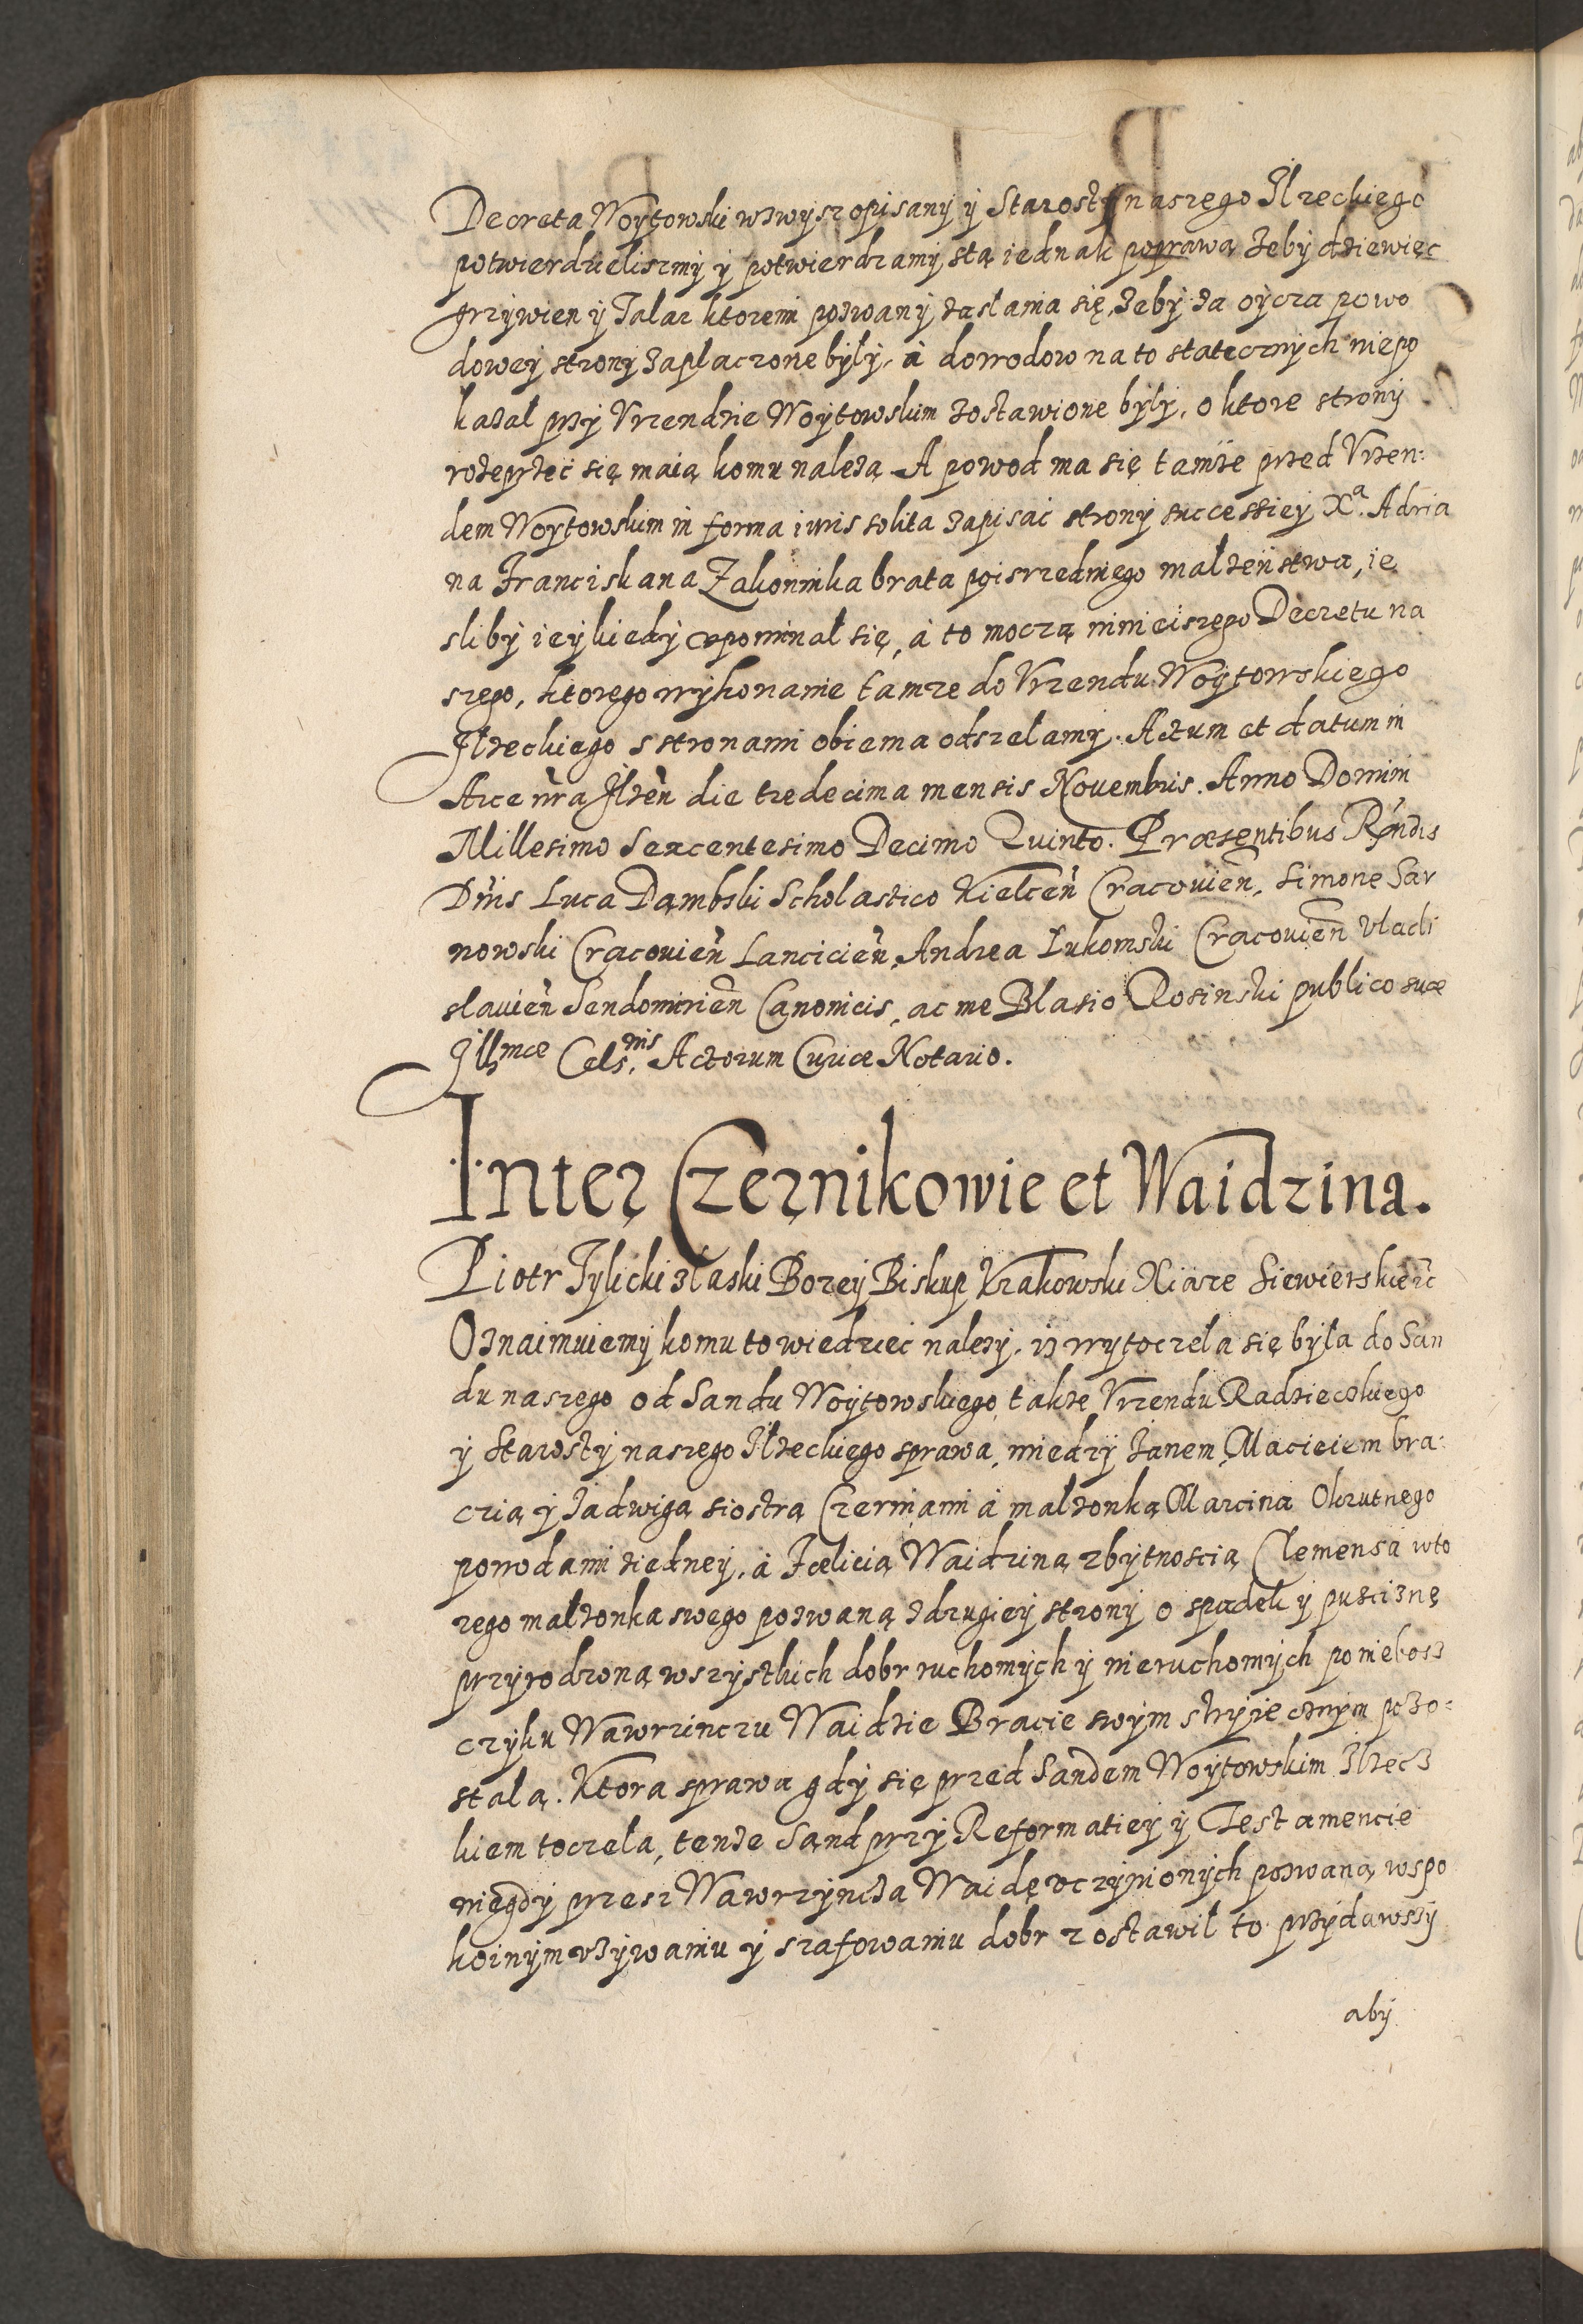 Decreta Woytowski wzwysz opisany y Starosty naszego Ilzeckiego
potwierdzeliszmy y potwierdzamy stą iednak poprawą zeby dziewięc
grzywien y Talar ktoremi pozwany zaslania się, zeby za oycza powo
dowey strony zaplaczone były, á dowodow na to statecznych niepo
kazal przy Vrzendzie Woytowskim zostawione były, o ktore strony
rozeprzec się maią komu nalezą A powod ma się tamze przed Vrzen:
dem Woytowskim in forma iuris solita zapisac strony successiey Xª. Adria
na Franciskana Zakonnika brata poisrzedniego malzenstwa, ie
sliby iey kiedy vpominał się, á to moczą ninieiszego Decretu na
szego, ktorego wykonanie tamze do Vrzendu Woytowskiego
Ilzeckiego s stronami obiema odszełamy. Actum et datum in
Arce nra Ilzen die tredecima mensis Nouembris. Anno Domini
Millesimo Sexcentesimo Decimo Quinto. Præsentibus Rndis
Dnis Luca Dąmbski Scholastico Kielcen Cracouien, Simone Sar
nowski Cracouien Lancicien, Andrea Lukomski Cracouien Vladi
slauien Sendomirien Canonicis, ac me Blasio Rosinski publico suæ
Illmæ Cels.nis Actorum Curiæ Notario.
Inter Czernikowie et Waidzina.
Piotr Tylicki złaski Bozey Biskup Krakowski Xiąze Siewierskie etc
Oznaimuiemy komu to wiedziec nalezy, iz wytoczeła się była do San
du naszego od Sandu Woytowskiego, takze Vrzendu Radzieczkiego
y Starosty naszego Ilzeckiego sprawa, miedzy Janem, Macieiem bra:
czią y Jadwigą siostrą Czerniami á malzonką Marcina Okrutnego
powodami ziedney, á Fœlicią Waidziną zbytnoscią Clemensa wto
rego malzonka swego pozwaną zdrugiey strony o spadek y pusciznę
przyrodzoną wszystkich dobr ruchomych y nieruchomych po niebosz
czyku Wawrzinczu Waidzie Bracie swym stryiecznym pozo:
stałą. Ktora sprawa gdy się przed Sandem Woytowskim Ilzecz
kiem toczeła, tenze Sąnd przy Reformatiey y Testamencie
niegdy przesz Wawrzyncza Waidę vczynionych pozwaną wspo
koinym vzywaniu y szafowaniu dobr zostawił to przydawszy
aby